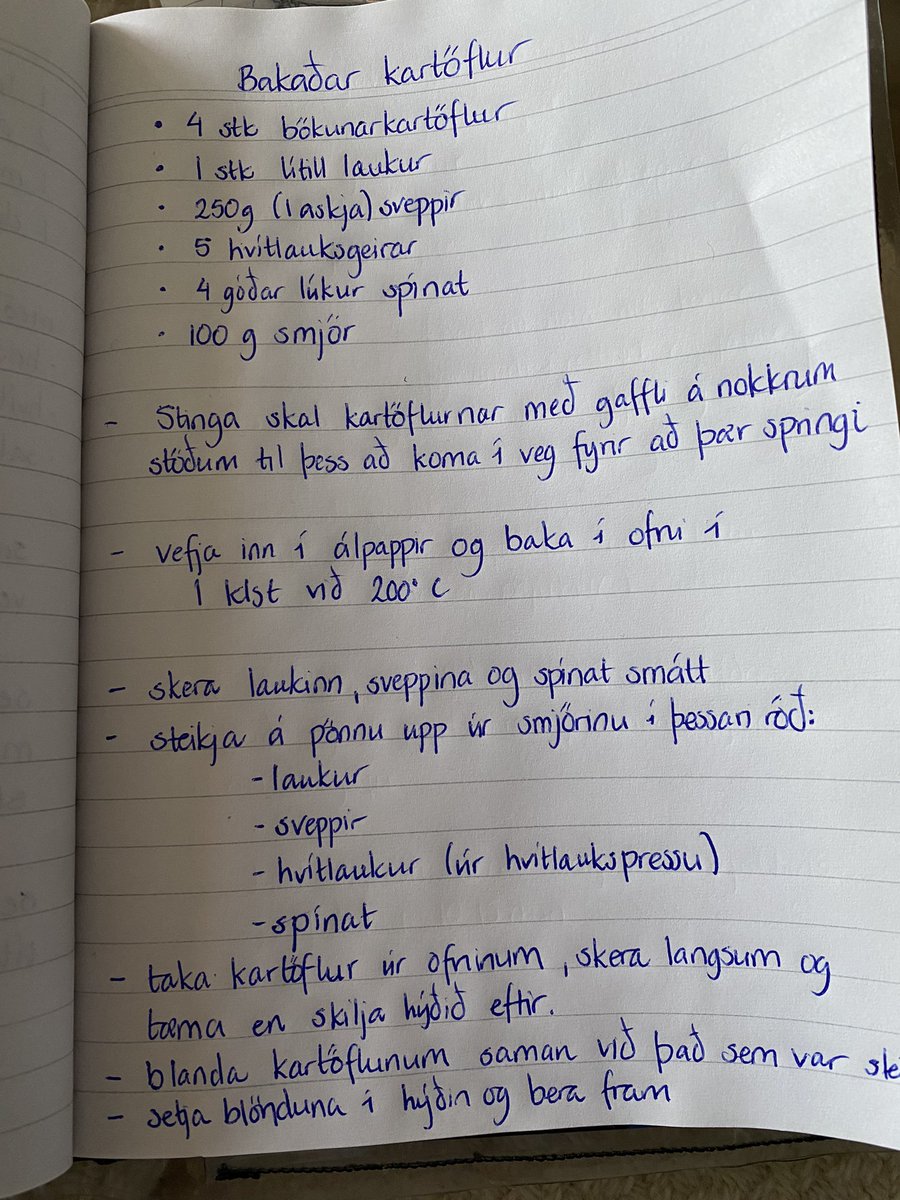 Bakaðar kartöflur
• 4 stk bökunarkartöflur
• 1 stk lítill laukur
• 250g (1 askja) sveppir
• 5 hvítlauksgeirar
• 4 góðar lúkur spínat
• 100 g smjör
- Stinga skal kartöflurnar með gaffli á nokkrum
stöðum til þess að koma í veg fyrir að þær springi
- vefja inn í álpappír og baka í ofni í
1 klst við 200° C
- skera laukinn, sveppina og spínat smátt
- steikja á pönnu upp úr smjörinu í þessari röð:
- laukur
- sveppir
- hvítlaukur (úr hvítlaukspressu)
- spínat
- taka kartöflur úr ofninum, skera langsum og
tæma en skilja hýðið eftir.
- blanda kartöflunum saman við það sem var
- setja blönduna í hýðin og bera fram